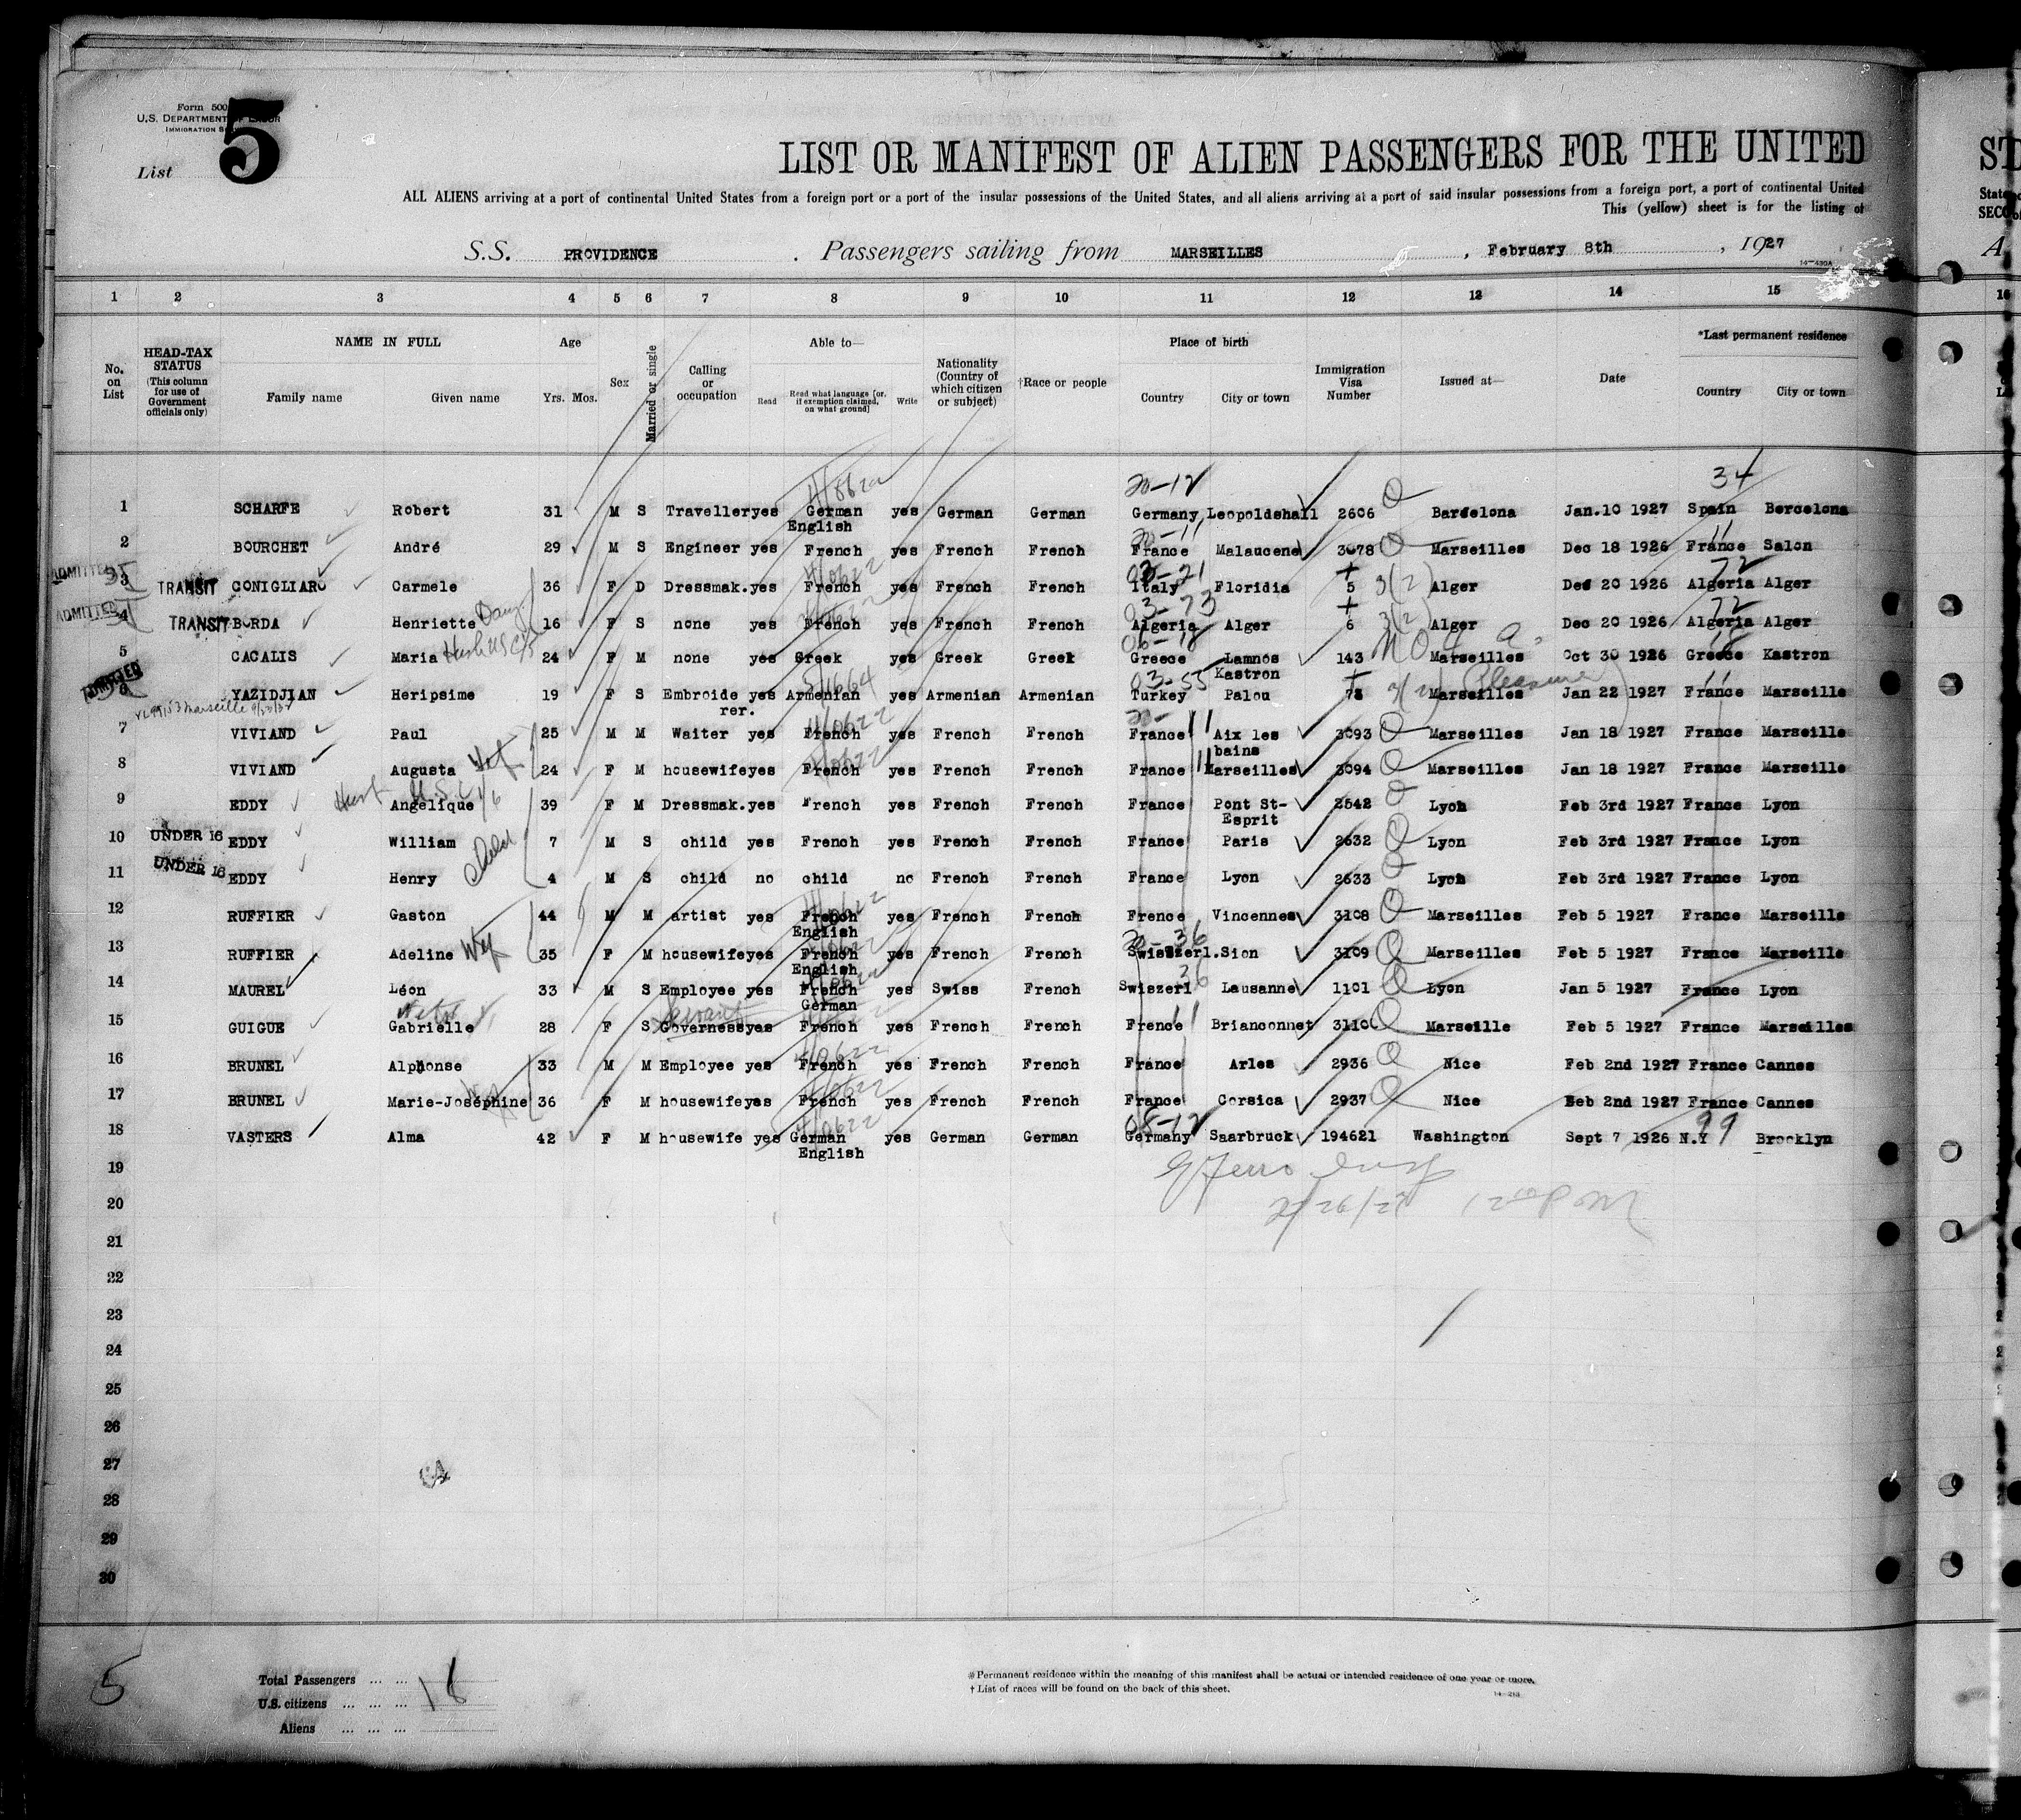 Form 500
U.S. DEPARTMENT OF LABOR
IMMIGRATION
List 5
LIST OR MANIFEST OF ALIEN PASSENGERS FOR THE UNITED
ALL ALIENS arriving at a port of continental United States from a foreign port or a port of the insular possessions of the United States, and all aliens arriving at a port of said insular possessions from a foreign port, a port of continental United
This (yellow) sheet is for the listing of
S.S. PROVIDENCE . Passengers sailing from MARSEILLES , February 8th , 1927
1 2 3 4 5 6 7 8 9 10 11 12 12 14 15
No. on List
HEAD-TAX STATUS (This column for use of Government officials only)
NAME IN FULL Family name Given name
Age Yrs. Mos.
Sex
Married or single
Calling or occupation
Able to— Read Read what language [or, if exemption claimed, on what ground] Write
Nationality (Country of which citizen or subject)
†Race or people
Place of birth Country City or town
Immigration Visa Number
Issued at—
Date
*Last permanent residence Country City or town
20-12 34
1 SCHARFE Robert 31 M S Traveller yes German English yes German German Germany Leopoldshall 2606 Barcelona Jan.10 1927 Spain Bercelona
2 BOURCHET André 29 M S Engineer yes French yes French French France Malaucene 3078 Marseilles Dec 18 1926 France Salon
ADMITTED
3 TRANSIT CONIGLIARO Carmele 36 F D Dressmak. yes French yes French French Italy Floridia 5 3(2) Alger Des 20 1926 Algeria Alger
ADMITTED
4 TRANSIT BORDA Henriette 16 F S none yes French yes French French Algeria Alger 6 3(2) Alger Dec 20 1926 Algeria Alger
5 CACALIS Maria 24 F M none yes Greek yes Greek Greek Greece Lamnos Kastron 143 Marseilles Oct 30 1926 Greece Kastron
ADMITTED
YAZIDJIAN Heripsime 19 F S Embroide rer. yes Armenian yes Armenian Armenian Turkey Palou 78 Marseilles Pleasure Jan 22 1927 France Marseille
7 VIVIAND Paul 25 M M Waiter yes French yes French French France Aix les bains 3093 Marseilles Jan 18 1927 France Marseille
8 VIVIAND Augusta Wif 24 F M housewife yes French yes French French France Marseilles 3094 Marseilles Jan 18 1927 France Marseille
9 EDDY Angelique 39 F M Dressmak. yes French yes French French France Pont St-Esprit 2542 Lyon Feb 3rd 1927 France Lyon
10 UNDER 16 EDDY William 7 M S child yes French yes French French France Paris 2632 Lyon Feb 3rd 1927 France Lyon
11 UNDER 16 EDDY Henry 4 M S child no child no French French France Lyon 2633 Lyon Feb 3rd 1927 France Lyon
12 RUFFIER Gaston 44 M M artist yes French English yes French French Frence Vincennes 3108 Marseilles Feb 5 1927 France Marseille
13 RUFFIER Adeline Wif 35 F M housewife yes French English yes French French Swiszerl. Sion 3109 Marseilles Feb 5 1927 France Marseille
14 MAUREL Léon 33 M S Employee yes French German yes Swiss French Swiszerl Lausanne 1101 Lyon Jan 5 1927 France Lyon
15 GUIGUE Gabrielle 28 F S Governess Servant yes French yes French French Frence Brianconnet 3110 Marseille Feb 5 1927 France Marseilles
16 BRUNEL Alphonse 33 M M Employee yes French yes French French France Arles 2936 Nice Feb 2nd 1927 France Cannes
17 BRUNEL Marie-Joséphine 36 F M housewife yes French yes French French France Corsica 2937 Nice Feb 2nd 1927 France Cannes
18 VASTERS Alma 42 F M housewife yes German English yes German German Germany Saarbruck 194621 Washington Sept 7 1926 N.Y 99 Brooklyn
19
20
21
22
23
24
25
26
27
28
29
30
5
Total Passengers ... ... 18
U.S. citizens ... ... ...
Aliens ... ... ...
* Permanent residence within the meaning of this manifest shall be actual or intended residence of one year or more.
† List of races will be found on the back of this sheet.